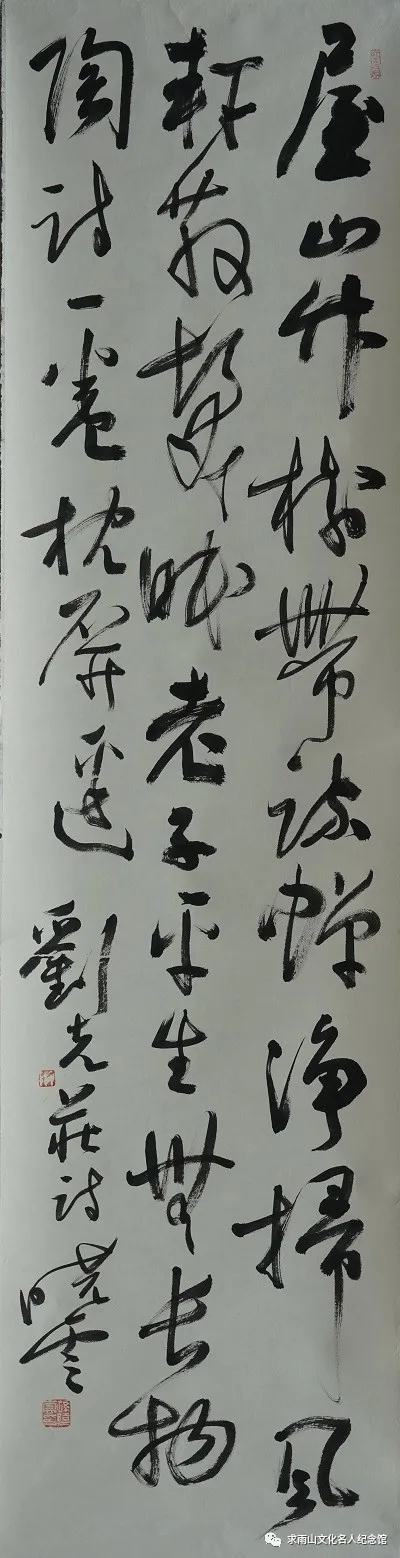 屋山竹樹帶疏蟬淨掃風
軒散髮眠老子平生無長物
陶詩一卷枕屏邊 劉克莊詩 曉雲
求雨山文化名人纪念馆